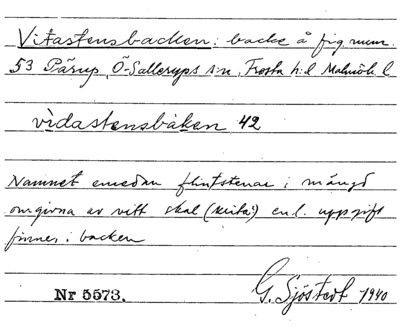 Vitastensbacken: backe å fig.num.
53 Pärup, Ö. Sallerups s:n, Frosta h:d Malmöh. l
vìdastensbàken 42
Namnet emedan flintstenar i mängd
omgivna av vitt skal (krita) enl. uppgift
finnes i backen
Nr 5573. G. Sjöstedt 1940